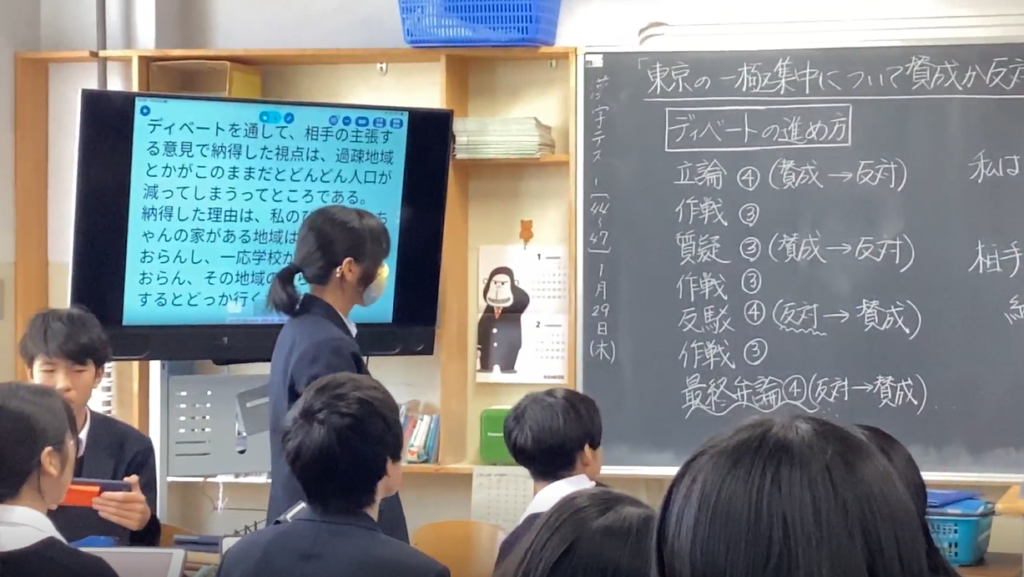 ディベートを通して、相手の主張す
る意見で納得した視点は、過疎地域
とかがこのままだとどんどん人口が
減ってしまうってところである。
納得した理由は、私のひ
ゃんの家がある地域は
おらんし、一応学校が
おらん、その地域の
するとどっか行く
1
2
「東京の一極集中について賛成か反対
ディベートの進め方
立論 ④ (賛成→反対)
作戦 ③
質疑 ③ (賛成→反対)
作戦 ③
反駁 ④ (反対→賛成)
作戦 ③
最終弁論 ④ (反対→賛成)
私は
相手
1月29日(木)